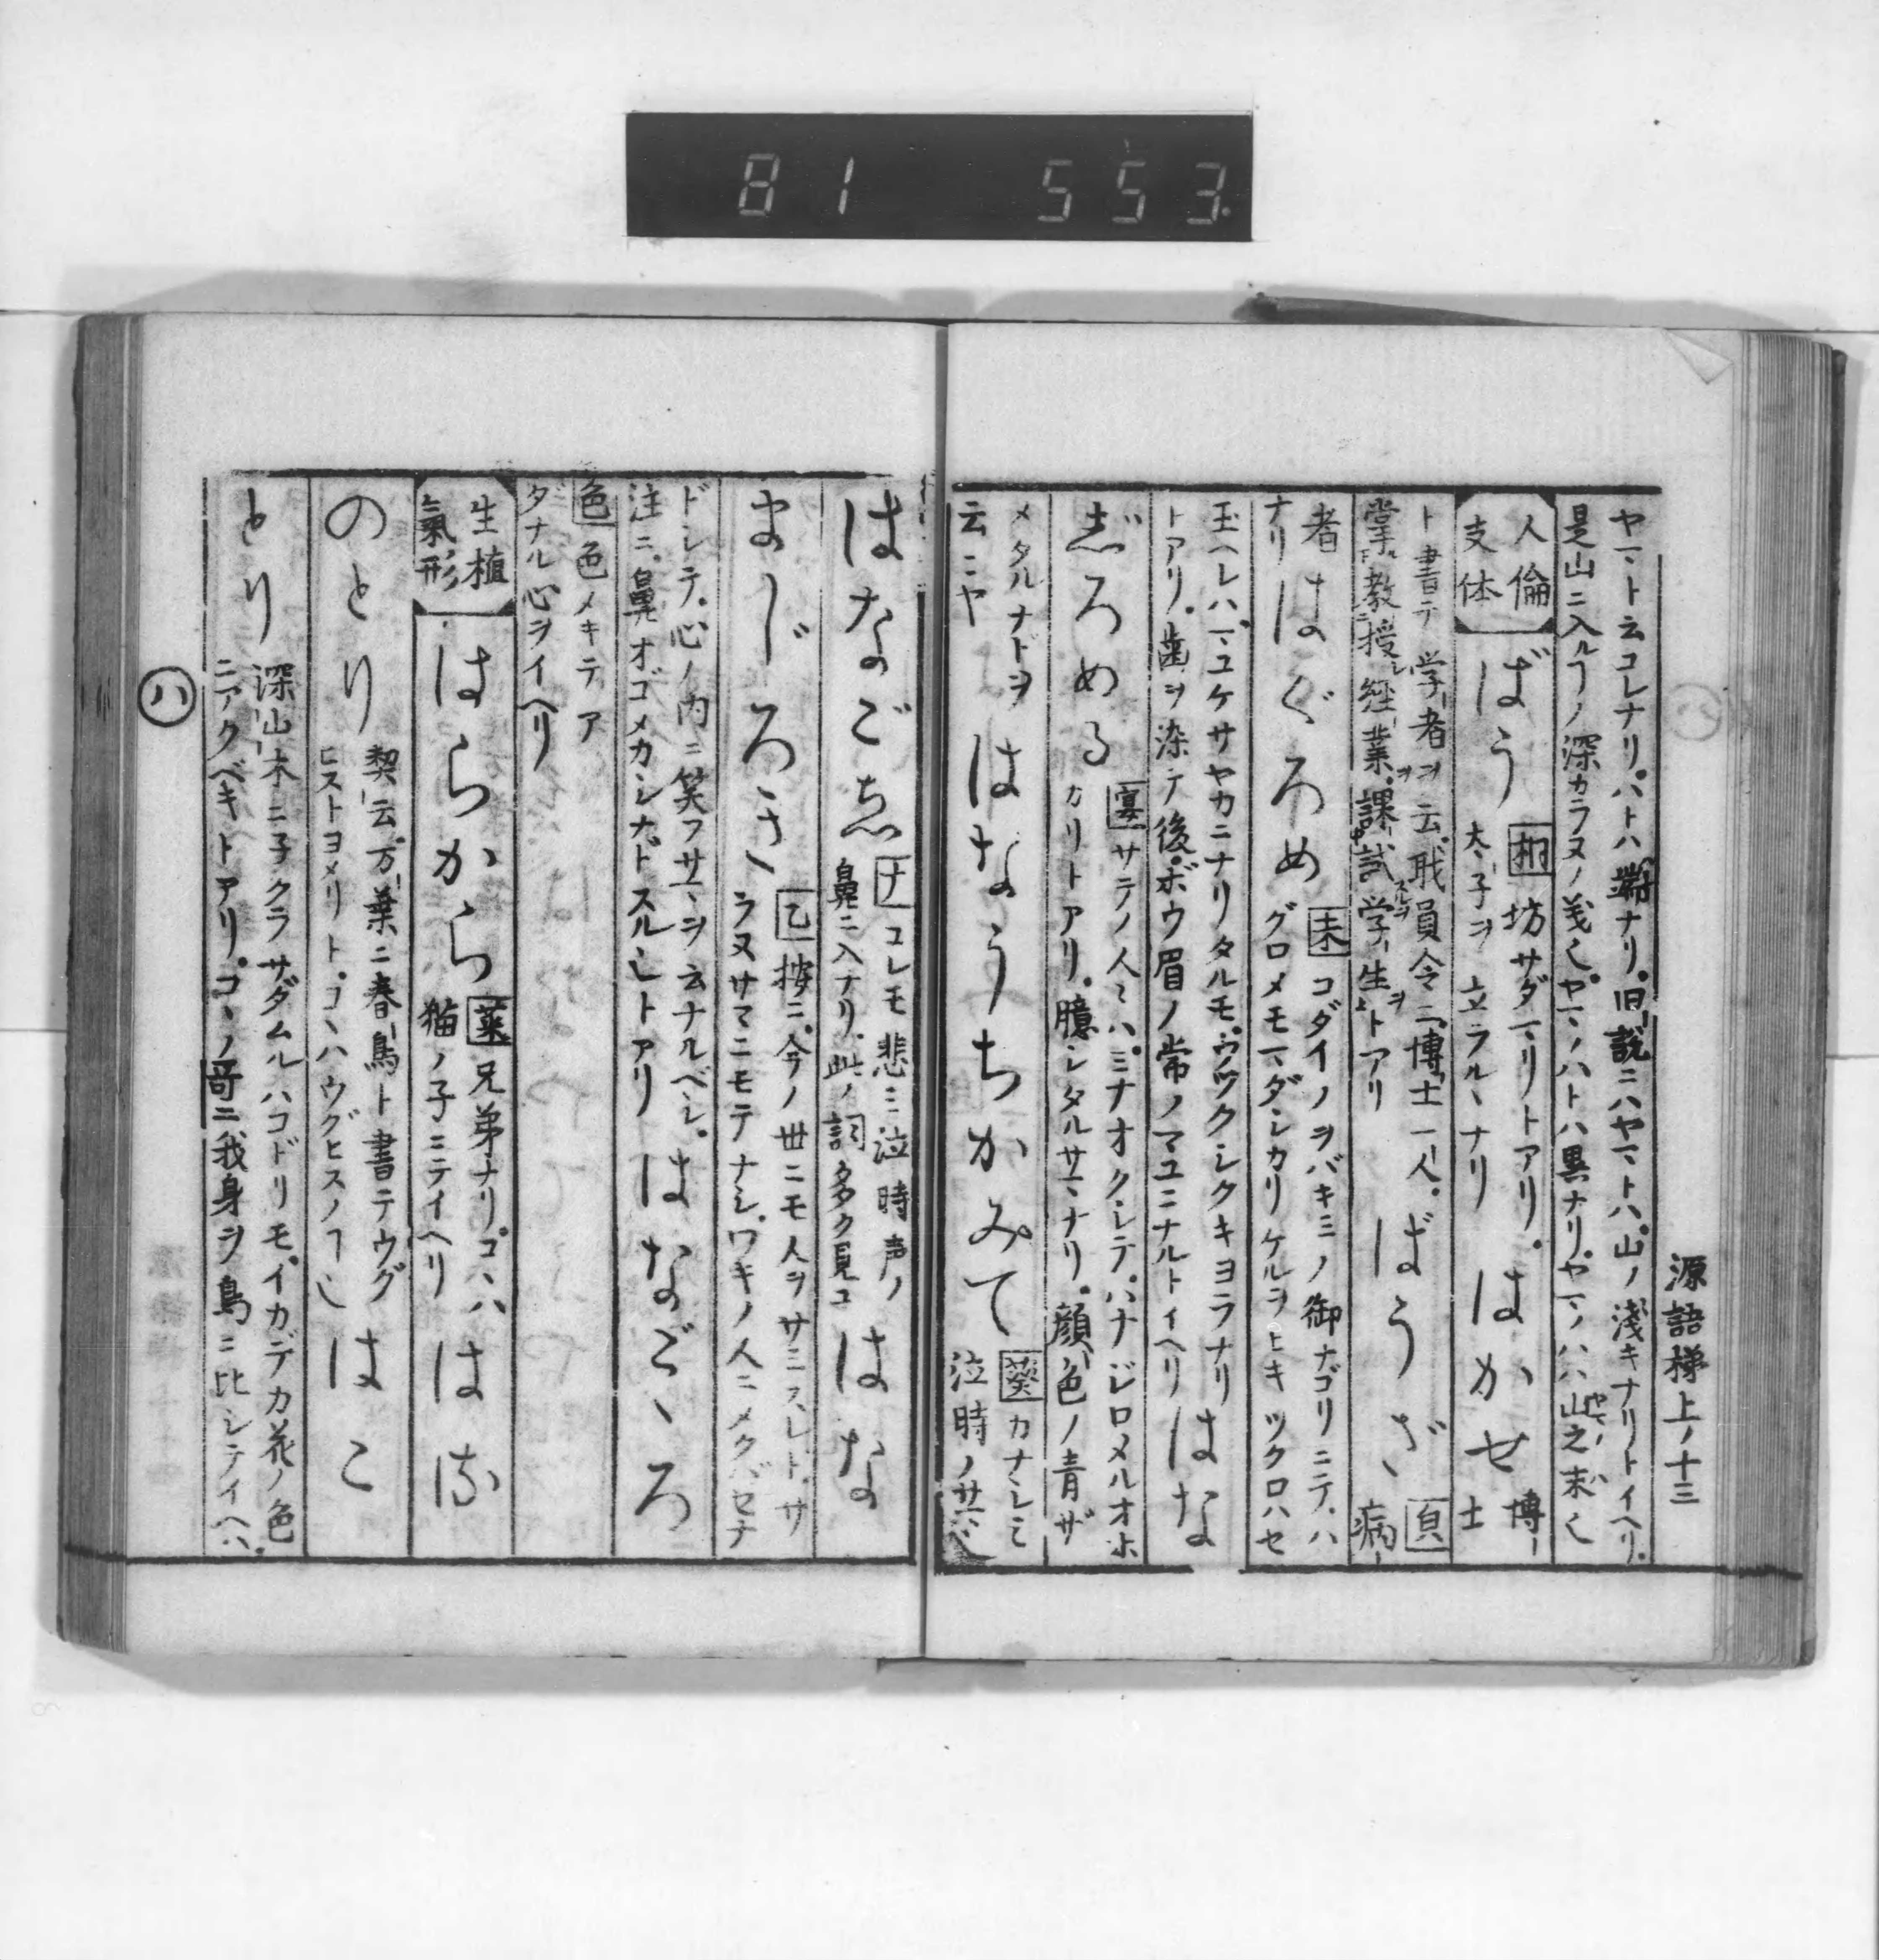 81 553
源語梯上ノ十三
ヤマト云コレナリ。ハトハ端ナリ。旧説ニハヤマトハ。山ノ淺キナリトイヘリ。
是山ニ入ルヿノ深カラヌノ義也。ヤマノハトハ異ナリ。ヤマノハハ山之末也
人倫
支体
ばう
桐 坊サダマリトアリ。
太子ヲ立ラルヽナリ
はかせ
博士
ト書テ学者ヲ云。職員令ニ博士一人。
掌教授經業。課試学生トアリ
ばうざ
頁 病
者
ナリ
はぐろめ
末 コダイノヲバキミノ御ナゴリニテ。ハ
グロメモマダシカリケルヲヒキツクロハセ
玉ヘレハ。マユケサヤカニナリタルモ。ウツクシクキヨラナリ
トアリ。歯ヲ染テ後。ボウ眉ノ常ノマユニナルトイヘリ
はな
志゛ろめる
宴 サテノ人〻ハ。ミナオクシテ。ハナジロメルオホ
カリトアリ。臆シタルサマナリ。顔色ノ青ザ
メタルナドヲ
云ニヤ
はなうちかみて
葵 カナシミ
泣時ノサマ
はなごゑ
コレモ悲ミ泣時声ノ
鼻ニ入ナリ。此ノ詞多ク見ユ
はな
まじろき
乙 按ニ。今ノ世ニモ人ヲサミスレト。サ
ラヌサマニモテナシ。ワキノ人ニメクバセナ
ドシテ。心ノ内ニ笑フサマヲ云ナルベシ。
注ニ。鼻オゴメカシナドスル也トアリ
はなごゝろ
色 色メキテア
ダナル心ヲイヘリ
生植
氣形
はらから
葉 兄弟ナリ。コヽハ
猫ノ子ニテイヘリ
はは
のとり
契云。万葉ニ春鳥ト書テウグ
ヒストヨメリト。コヽハウグヒスノヿ也
はこ
とり
深山木ニ子クラサダムルハコドリモ。イカデカ花ノ色
ニアクベキトアリ。コヽノ哥ニ我身ヲ鳥ニ比シテイヘハ。
ハ